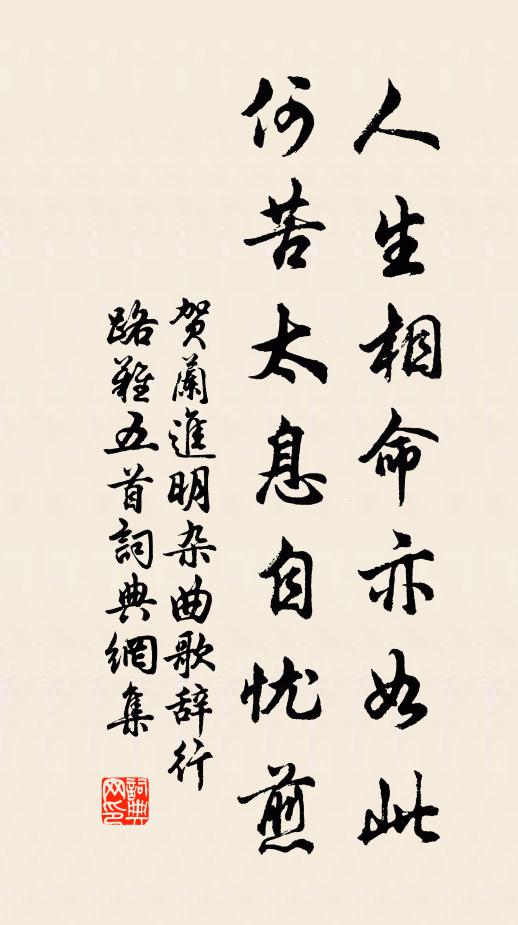 人生相命亦如此
何苦太息自忧煎
贺蘭進明杂曲歌辞行
路难五首詞典網集
詞典
网印